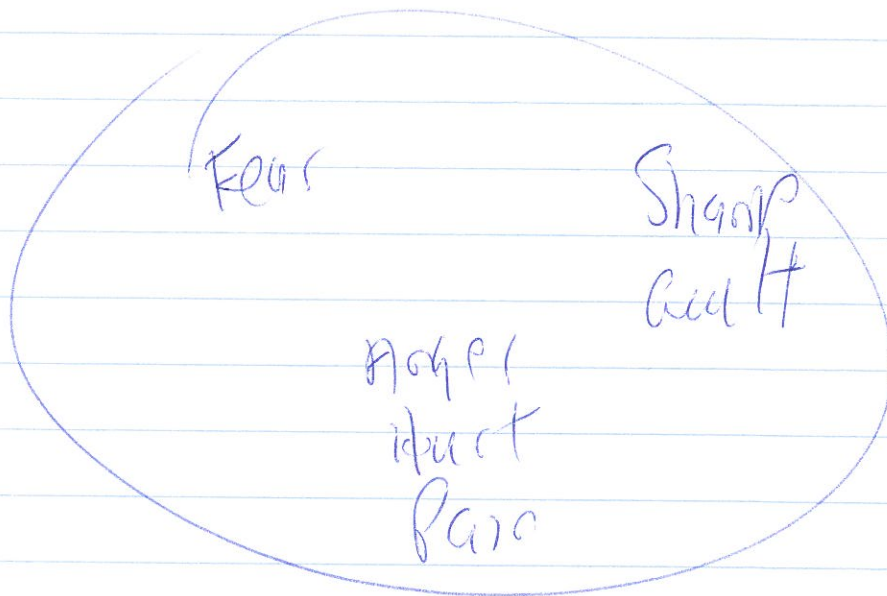 Fear
Shame
Guilt
Anger
Hurt
Pain